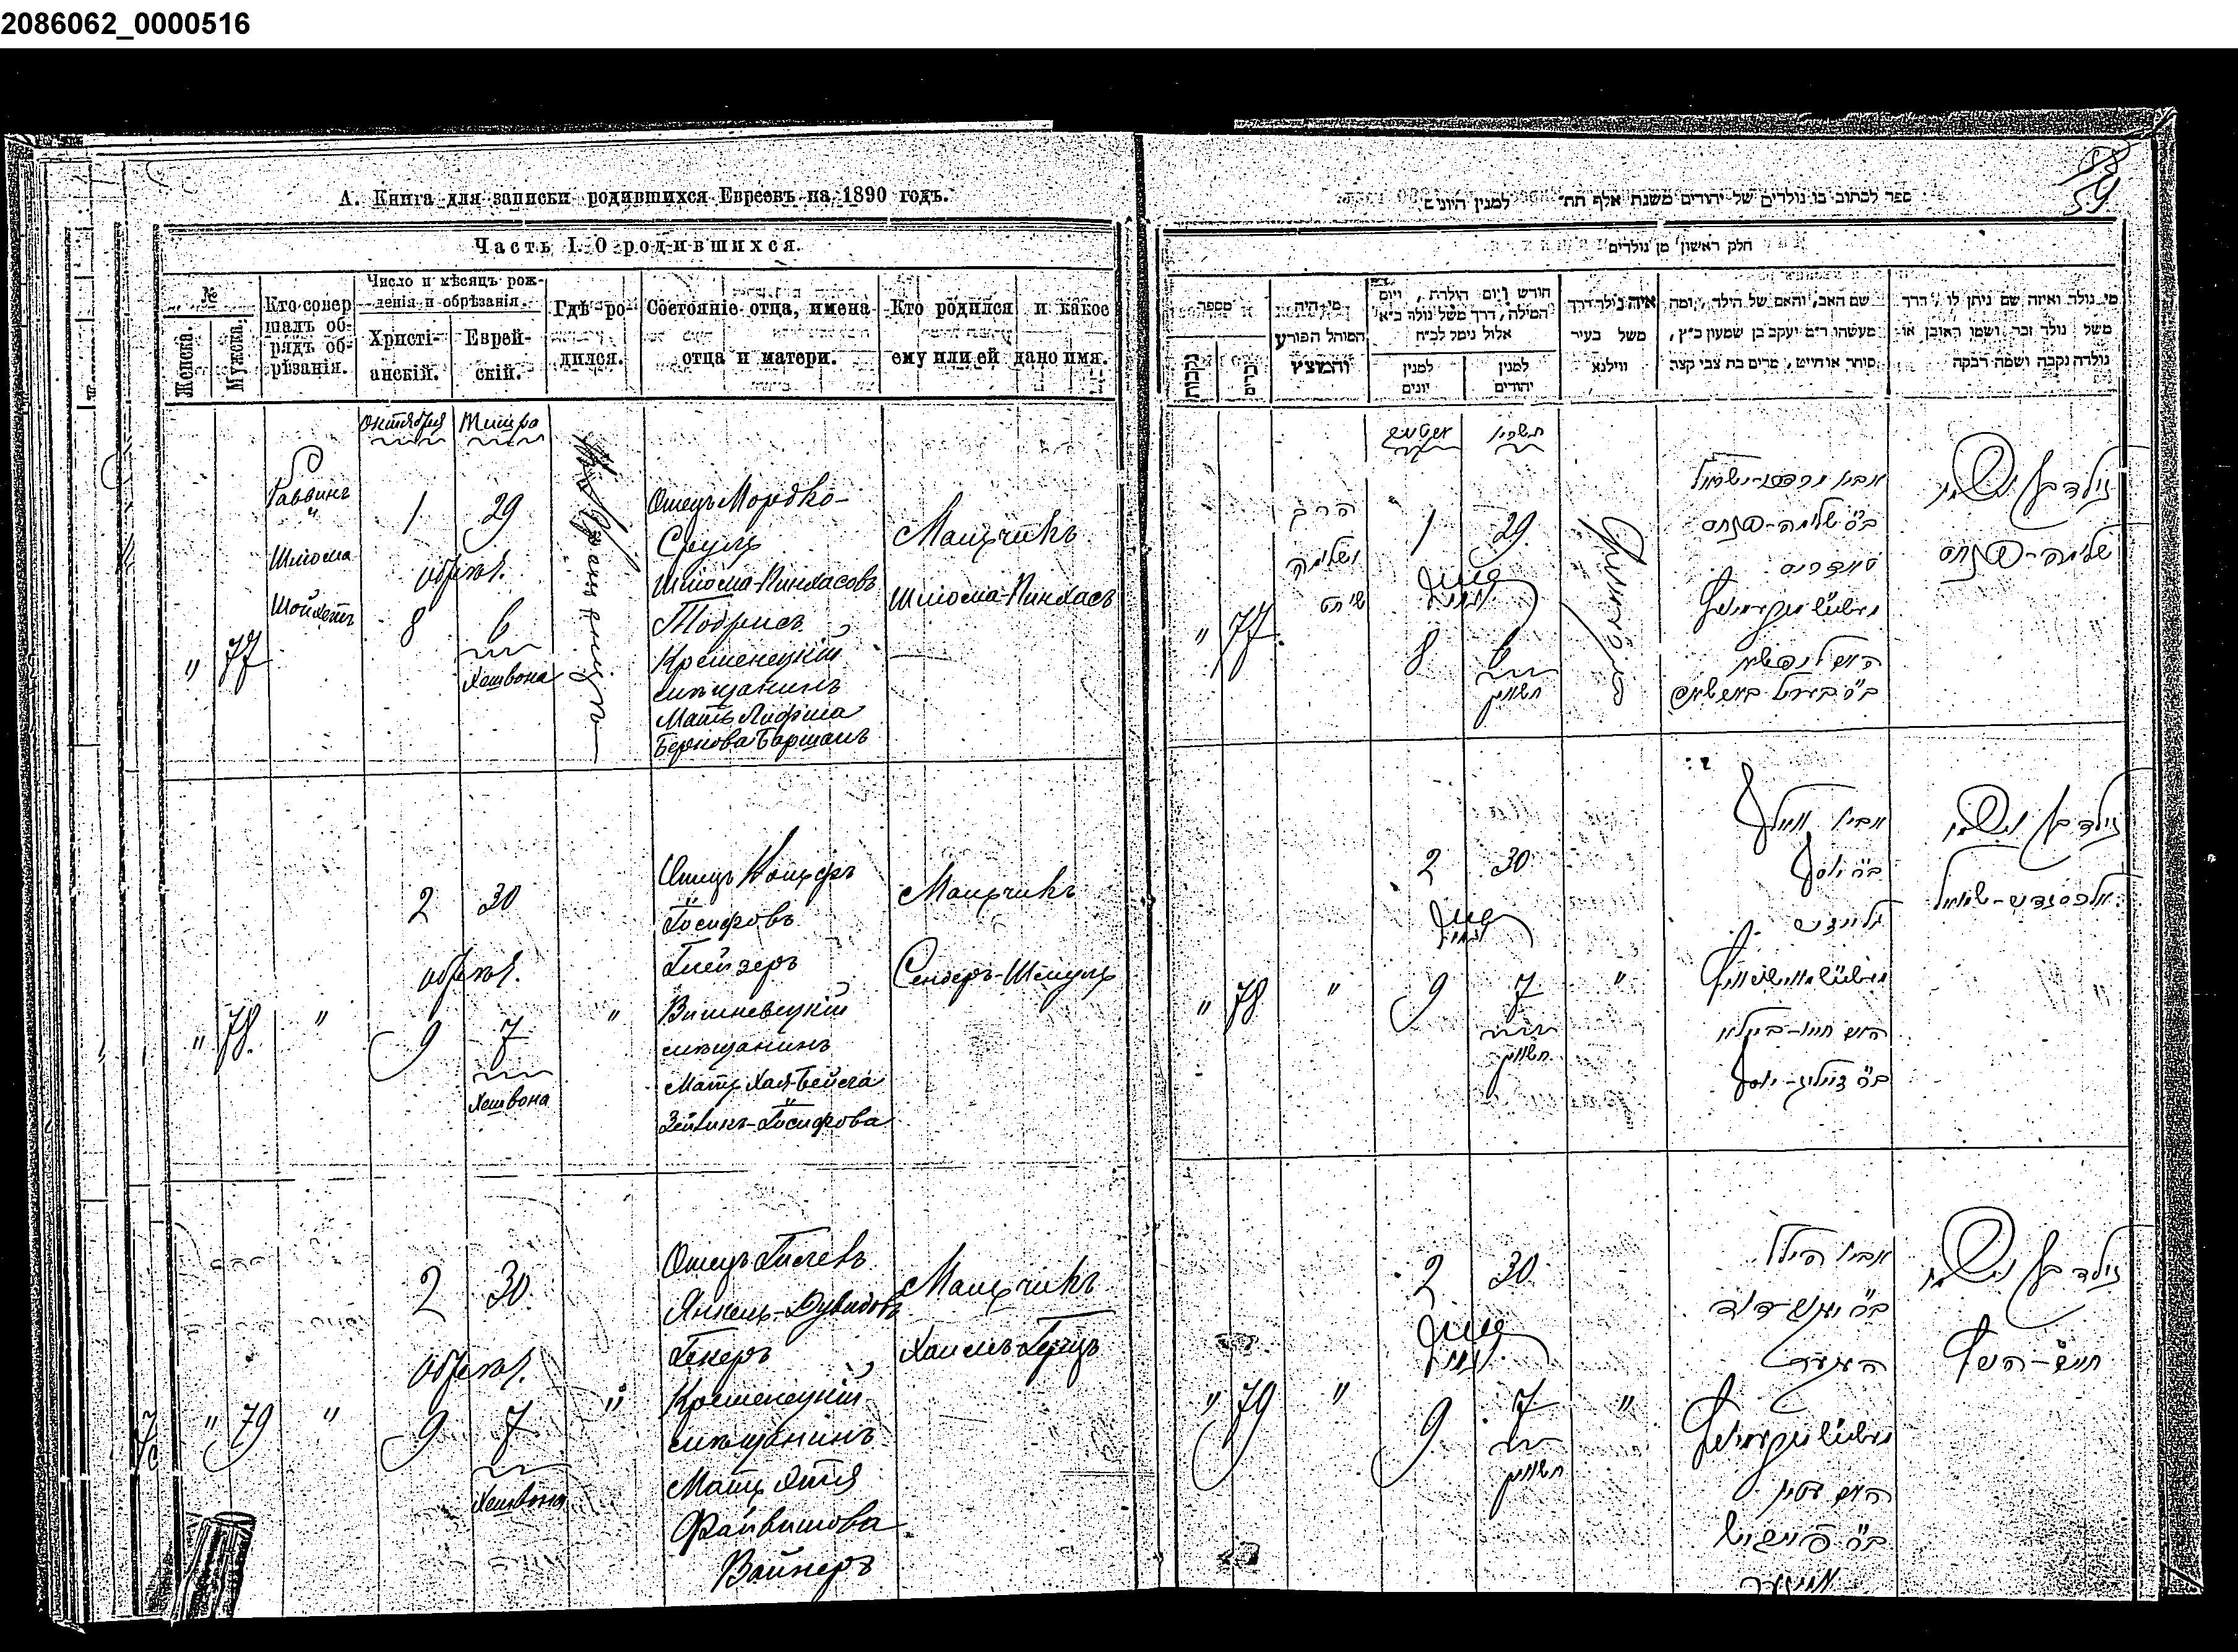 2086062_0000516
А. Книга для записки родившихся Евреевъ на 1890 годъ.
Часть I. О родившихся.
№
Женска.
Мужска.
Кто совер
шалъ об-
рядъ об-
рѣзанія.
Число и мѣсяцъ рож-
денія и обрѣзанія.
Христі-
анскій.
Еврей-
скій.
Гдѣ ро-
дился.
Состояніе отца, имена
отца и матери.
Кто родился и какое
ему или ей дано имя.
октября
Тишра
"
77
Раввинъ
"
Шлiома
Шойхетъ
1
29
обрѣзан.
8
6
Хешвона
Отецъ Мордко-
Сруль
Шлiома-Пинхасовъ
Тодрисъ
Кременецкій
мѣщанинъ
Мать Лифша
Беркова Баршапъ
Мальчикъ
Шлiома-Пинхасъ
"
78.
"
2
30
обрѣзан.
9
7
Хешвона
"
Отецъ Вольфъ
Iосифовъ
Глейзеръ
Вишневецкій
мѣщанинъ
Мать Хая-Бейла
Зейликъ-Iосифова
Мальчикъ
Сендеръ-Шмуль
"
79
"
2
30.
обрѣзан.
9
7
Хешвона
"
Отецъ Гилель
Янкель-Дувидовъ
Гекеръ
Кременецкій
мѣщанинъ
Мать Этля
Файвишова
Вайнеръ
Мальчикъ
Хаимъ Герцъ
ספר לכתוב בו נולדים של יהודים משנת אלף תת" למנין היונים
59
חלק ראשון מן נולדים
מספר
נקבות
זכרים
מי היה
המוהל הפורע
והמוצץ
חודש ויום הולדת, ויום
המילה, דרך משל נולד כ״א
אלול נימל לכ״ח
למנין
יונים
למנין
יהודים
איה נולד דרך
משל בעיר
ווילנא
שם האב, והאם של הילד, ומה
מעשהו ר״מ יעקב בן שמעון כ״ץ,
סוחר או חייט, מרים בת צבי קצר.
מי נולד ואיזה שם ניתן לו, דרך
משל נולד זכר ושמו ראובן או
נולדה נקבה ושמה רבקה
תשרי
"
77.
הרב
ושלמה
שו״ט
1
29.
8
6
חשון
אביו מרדכי-ישראל
ב״ר שלמה-פנחס
נולד בן ושמו
שלמה-פנחס
"
78
"
2
30
9
7
חשון
"
אביו וואלף
ב״ר יוסף
האם חיה-ביילא
נולד בן ושמו
אלכסנדר-שמואל
"
79
"
2
30
9.
7
חשון
"
אביו הילל
ב״ר יעקב דוד
העקער
האם עטיל
ב״ר פייביש
וויינער
נולד בן ושמו
חיים-הירש